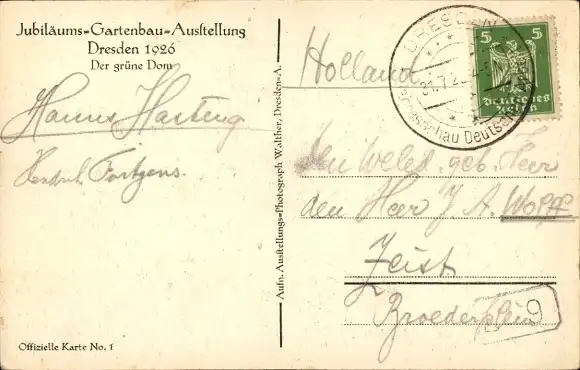 Jubiläums=Gartenbau=Ausstellung
Dresden 1926
Der grüne Dom
Hanns Hasting
Offizielle Karte No. 1
Aufn. Ausstellungs=Photograph Walther, Dresden=A.
DRESDEN
31.7.2
schau Deutsch
5 5
Deutsches
Reich
Holland
geb.
den Heer J A Wolff
Zeist
Broederplein
9